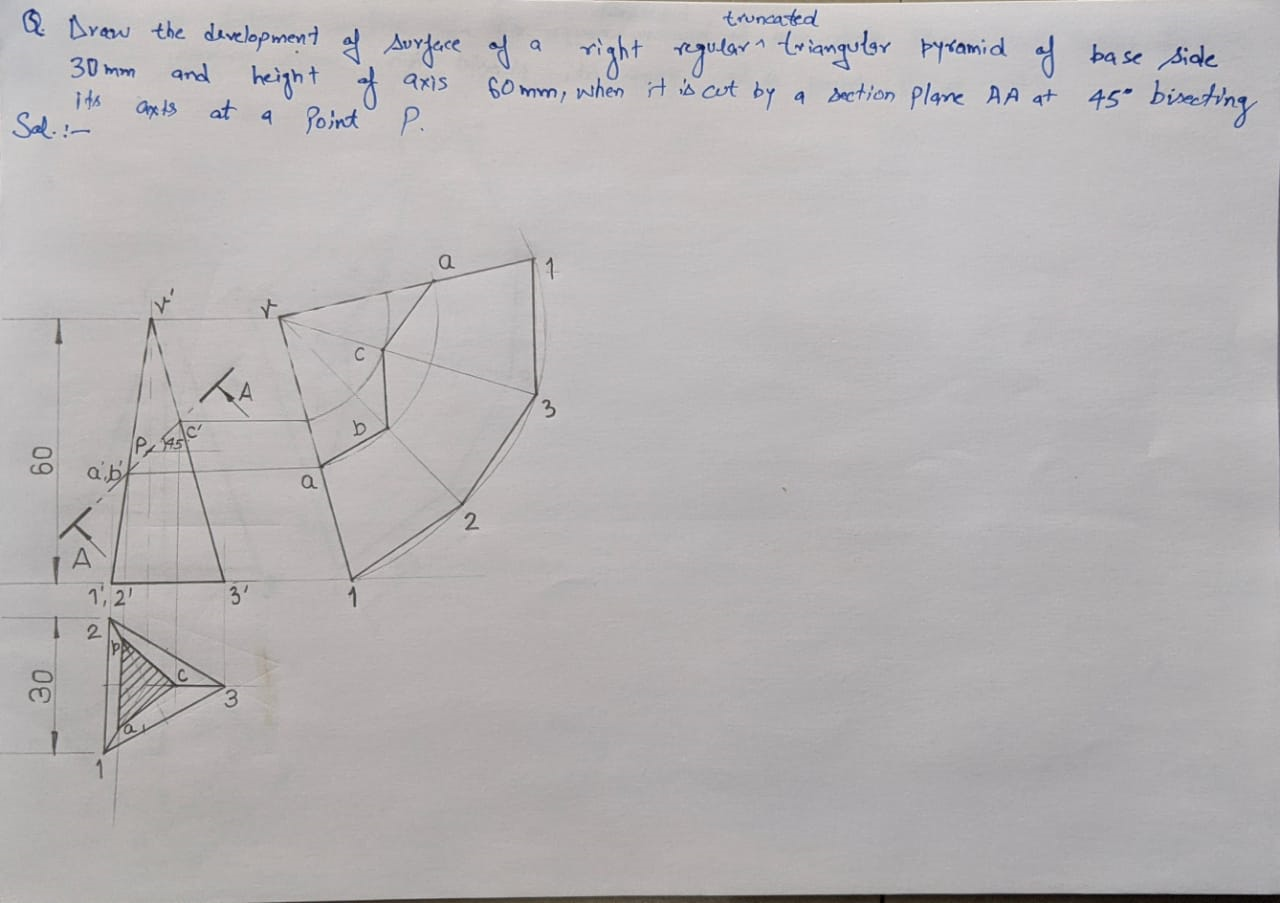 truncated
Q. Draw the development of surface of a right regular ^ triangular pyramid of base side
30mm and height of axis 60mm, when it is cut by a section plane AA at 45° bisecting
its axis at a Point P.
Sol.:-
a
1
v'
v
c
A
3
P
45
c'
b
60
a',b'
a
2
A
1',2'
3'
1
2
b
c
30
3
a
1